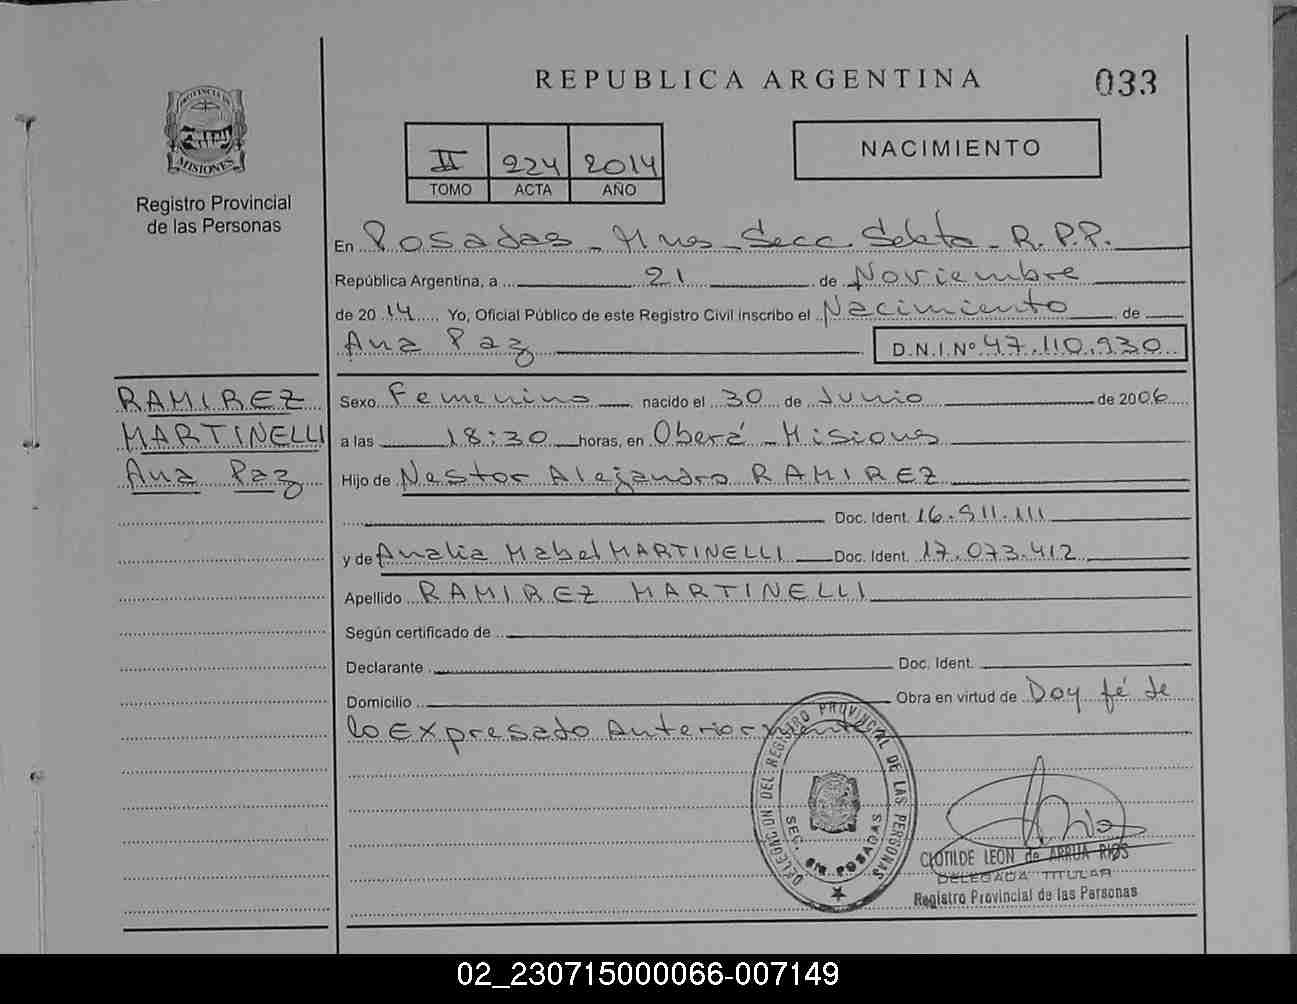 REPUBLICA ARGENTINA
033
PROVINCIA DE
MISIONES
Registro Provincial
de las Personas
II 224 2014
TOMO ACTA AÑO
NACIMIENTO
En Posadas - Mnes - Secc. Sexta - R.P.P.
República Argentina, a 21 de Noviembre
de 2014 Yo, Oficial Público de este Registro Civil inscribo el Nacimiento de
Ana Paz D.N.I.Nº 47.110.930
RAMIREZ
MARTINELLI
Ana Paz
Sexo Femenino nacido el 30 de Junio de 2006
a las 18:30 horas, en Oberá - Misiones
Hijo de Nestor Alejandro RAMIREZ
Doc. Ident. 16.911.111
y de Analia Mabel MARTINELLI Doc. Ident. 17.073.412
Apellido RAMIREZ MARTINELLI
Según certificado de
Declarante Doc. Ident.
Domicilio Obra en virtud de Doy fé de
lo Expresado Anteriormente
DELEGACION DEL REGISTRO PROVINCIAL DE LAS PERSONAS
POSADAS
CLOTILDE LEON de ARRUA RIOS
DELEGADA TITULAR
Registro Provincial de las Personas
02_230715000066-007149